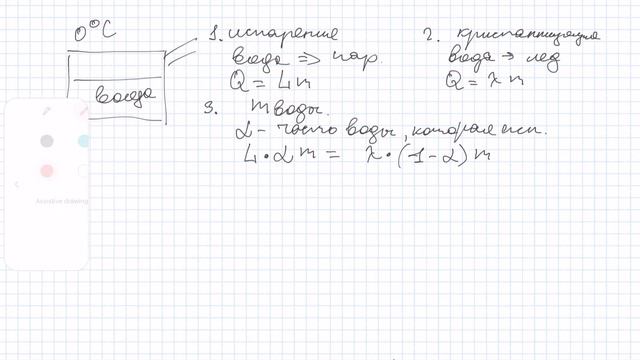 0°C
вода
1. испарение
вода => пар.
Q = Lm
2. кристаллизация
вода → лед
Q = λ m
3. m воды.
α - часть воды, которая исп.
L · α m = λ · (1 - α) m
Assistive drawing